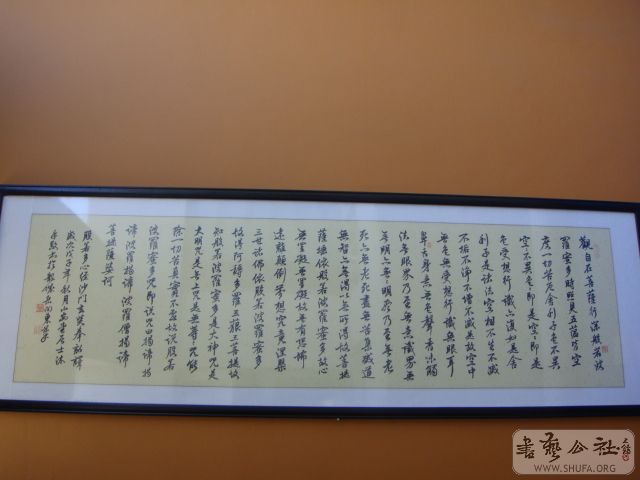 觀自在菩薩行深般若波
羅蜜多時照見五蘊皆空
度一切苦厄舍利子色不異
空空不異色色即是空空即是
色受想行識亦復如是舍
利子是諸法空相不生不滅
不垢不淨不增不減是故空中
無色無受想行識無眼耳
鼻舌身意無色聲香味觸
法無眼界乃至無意識界無
無明亦無無明盡乃至無老
死亦無老死盡無苦集滅道
無智亦無得以無所得故菩提
薩埵依般若波羅蜜多故心
無罣礙無罣礙故無有恐怖
遠離顛倒夢想究竟涅槃
三世諸佛依般若波羅蜜多
故得阿耨多羅三藐三菩提故
知般若波羅蜜多是大神咒是
大明咒是無上咒是無等咒能
除一切苦真實不虛故說般若
波羅蜜多咒即說咒曰揭諦揭
諦波羅揭諦波羅僧揭諦
菩提薩婆訶
般若多心經沙門玄奘奉詔譯
歲次戊子年秋月山
書藝公社
WWW.SHUFA.ORG